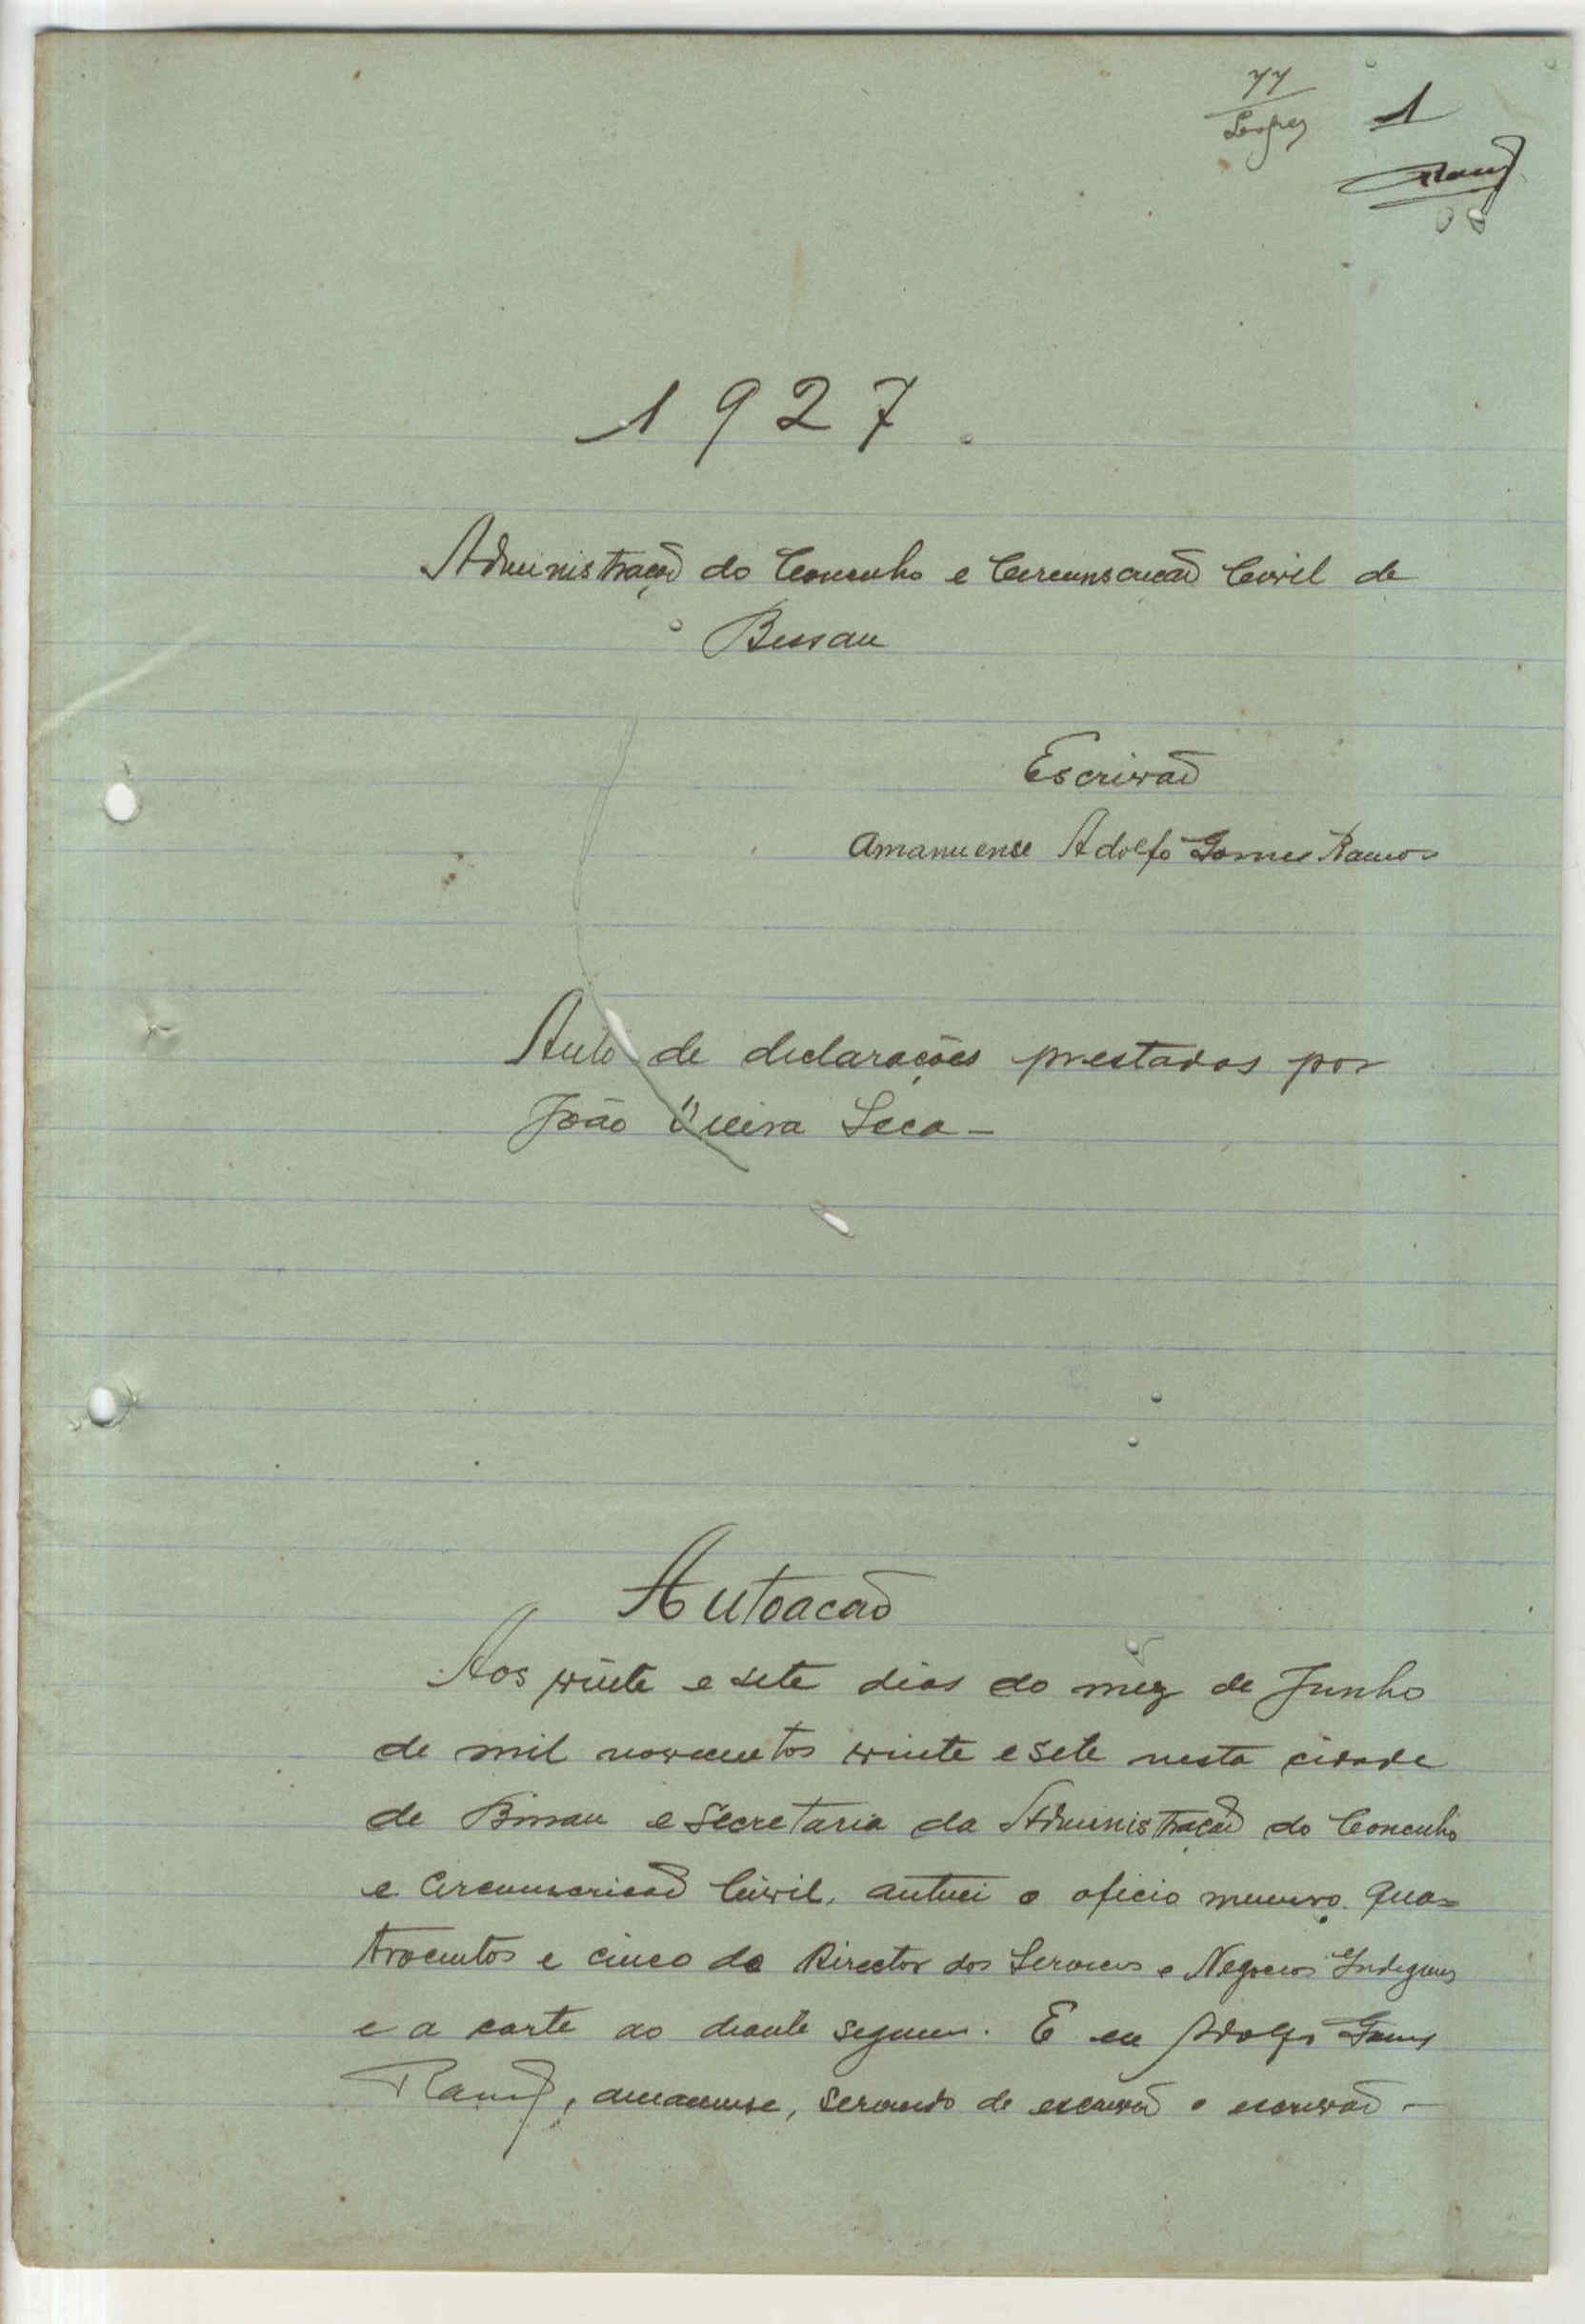 77
Lopes
1
Ramos
1927.
Administração do Concenho e Circunscrição Civil de
Bissau
Escrivão
Amanuense Adolfo Gomes Ramos
Auto de declarações prestadas por
João Vieira Seca -
Autoacão
Aos vinte e sete dias do mez de Junho
de mil novecentos vinte e sete nesta cidade
de Bissau e Secretaria da Administração do Concenho
e Circunscricão Civil, autuei o oficio numero qua=
trocentos e cinco do Director dos Servicos e Negocios Indigenas
e a carta ao deante seguem. E eu Adolfo Gomes
Ramos, amanuense, servindo de escrivão o escrivão -